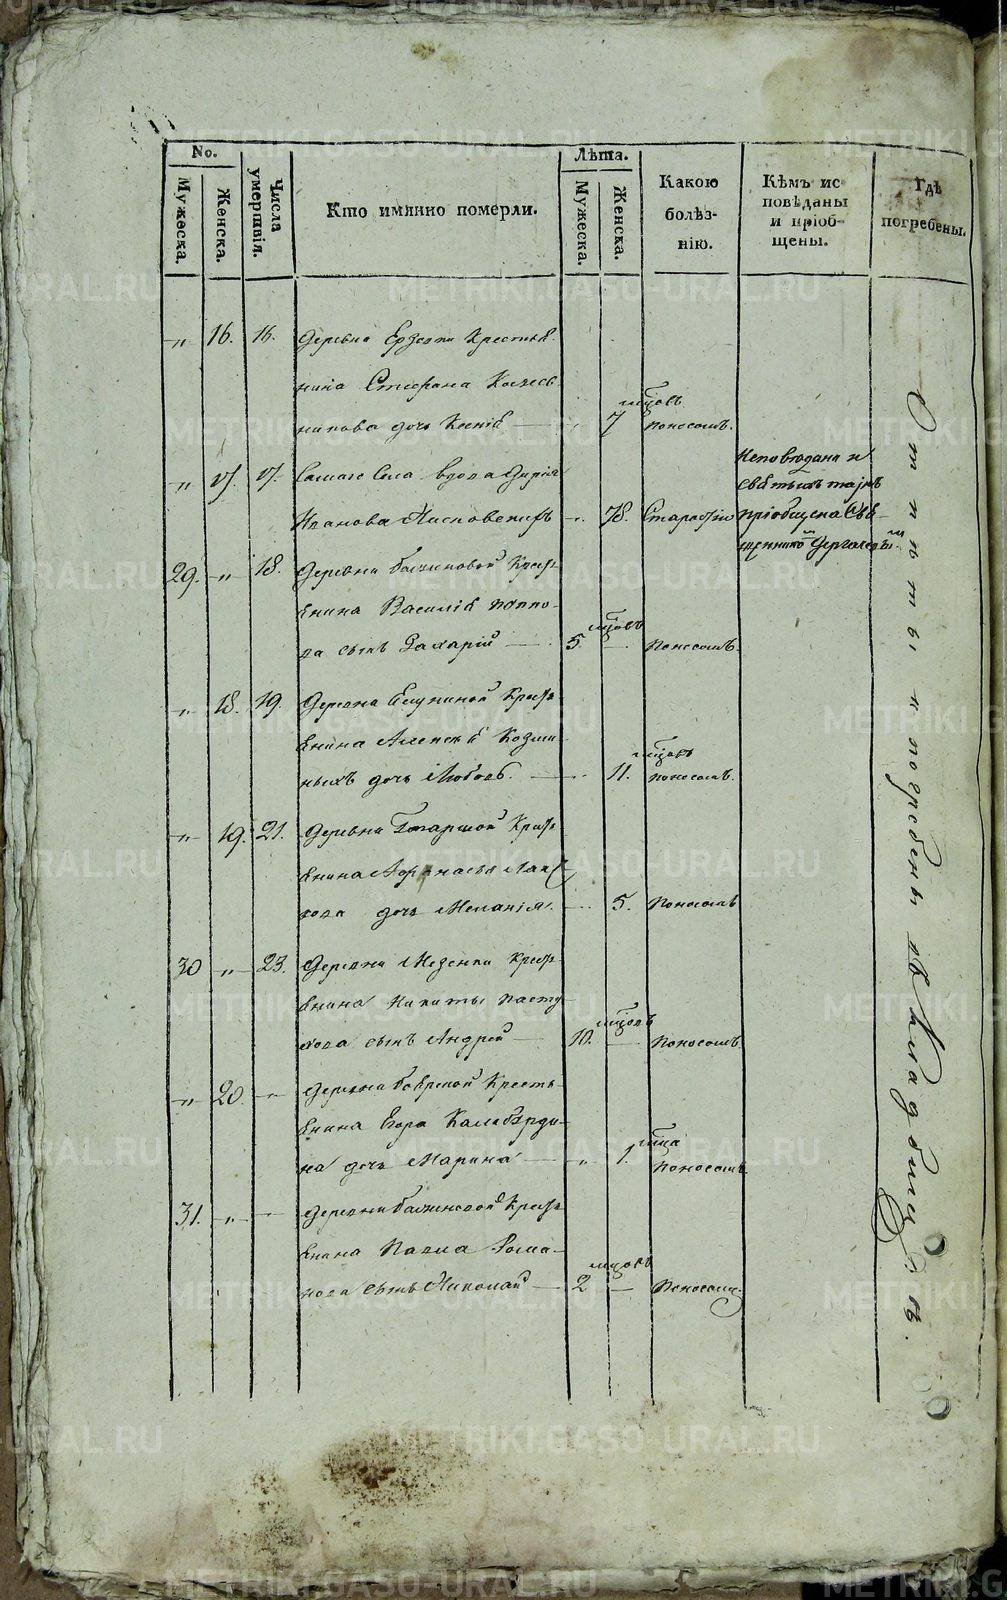 No.
Мужеска.
Женска.
Числа умертвія.
Кто имянно померли.
Лѣта.
Мужеска.
Женска.
Какою болѣзнію.
Кѣмъ исповѣданы и пріобщены.
Гдѣ погребены.
„ 16. 16. деревни Крестья
нина Стефана Колес
никова дочь Ксенія 7 мцовъ поносомъ.
„ 17. 17. Самаго Села вдова
Иванова 78. Старостію
Исповѣдана и
Святыхъ тайнъ
пріобщена Свя
щенникомъ Дергачевымъ.
29. „ 18. деревни Крест
янина Василія Попо
ва сынъ Захарій 5 мцовъ поносомъ.
„ 18. 19. деревни Крест
янина Алексѣя Козми
ныхъ дочь Любовь. 11. мцовъ поносомъ.
„ 19. 21. деревни Крест
янина Афанасья
дочь Меланія. 5. поносомъ
30 „ 23. деревни Мезенки Крест
янина Никиты Пасту
хова сынъ Андрей 10. мцовъ поносомъ.
„ 20. „ деревни Боярской Кресть
янина Егора
на дочь Марина „ 1. мца поносомъ.
31. „ деревни Крест
янина Павла Рома
нова сынъ Николай 2 мцовъ поносомъ.
Отпѣты и погребены въ Кладбищѣ